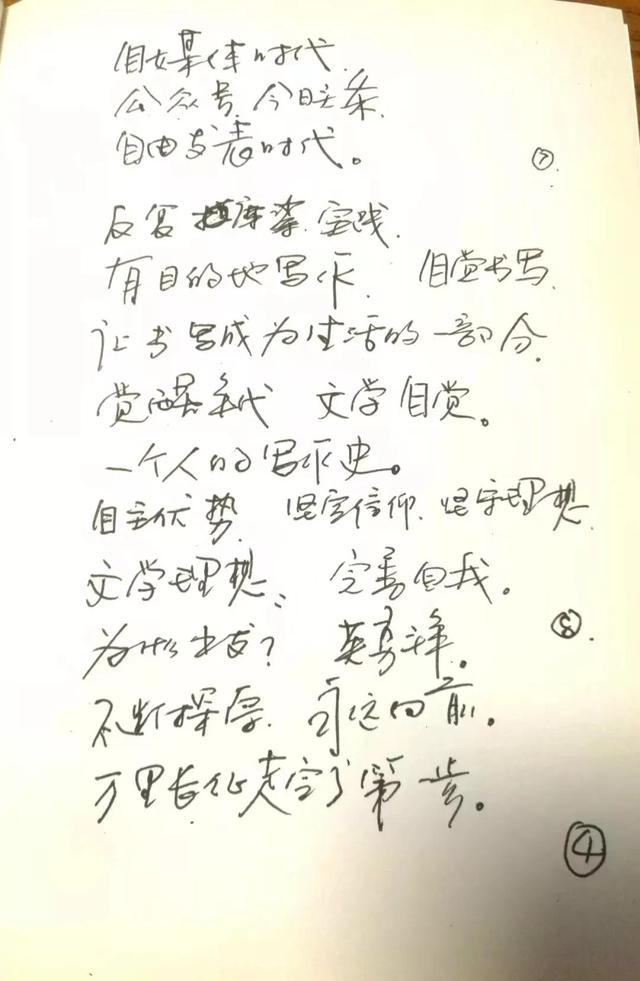 自媒体时代
公众号 今日头条
自由发表时代。
⑦
反复 实践
有目的地写作 自觉书写
让书写成为生活的一部分
觉醒年代 文学自觉。
一个人的写作史。
自主优势 坚定信仰 坚守理想
文学理想、完善自我。
⑧
为什么出发?
不断探索 永远向前。
万里长征走完了第一步。
④